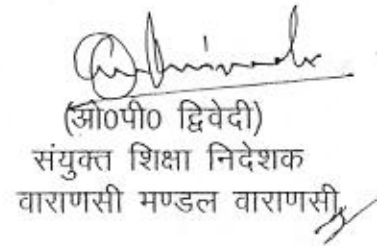 (ओ0पी0 द्विवेदी)
संयुक्त शिक्षा निदेशक
वाराणसी मण्डल वाराणसी